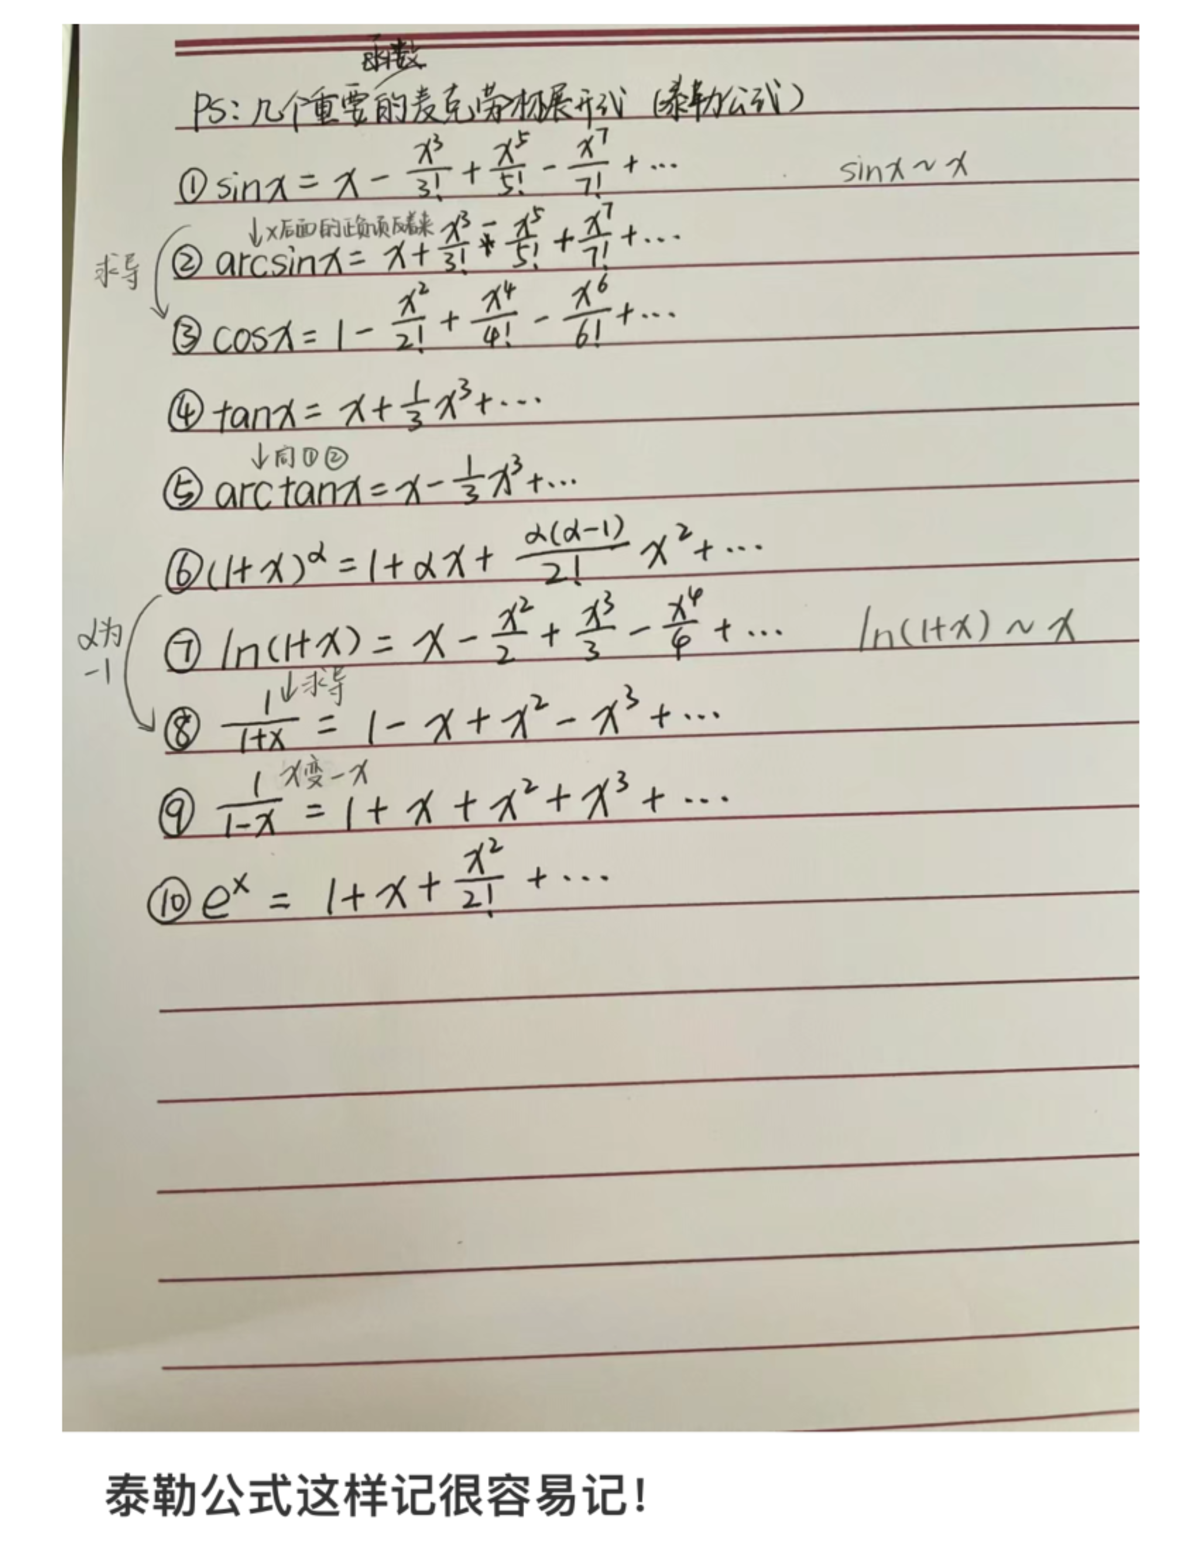 函数
PS: 几个重要的麦克劳林展开式 (泰勒公式)
① sinx = x - x³/3! + x⁵/5! - x⁷/7! + ··· sinx ~ x
↓x后面的正负项反着来
求导
② arcsinx = x + x³/3! - x⁵/5! + x⁷/7! + ···
③ cosx = 1 - x²/2! + x⁴/4! - x⁶/6! + ···
④ tanx = x + 1/3 x³ + ···
↓同①②
⑤ arctanx = x - 1/3 x³ + ···
⑥ (1+x)^α = 1 + αx + α(α-1)/2! x² + ···
α为
-1
⑦ ln(1+x) = x - x²/2 + x³/3 - x⁴/4 + ··· ln(1+x) ~ x
↓求导
⑧ 1/1+x = 1 - x + x² - x³ + ···
x变-x
⑨ 1/1-x = 1 + x + x² + x³ + ···
⑩ e^x = 1 + x + x²/2! + ···
泰勒公式这样记很容易记!